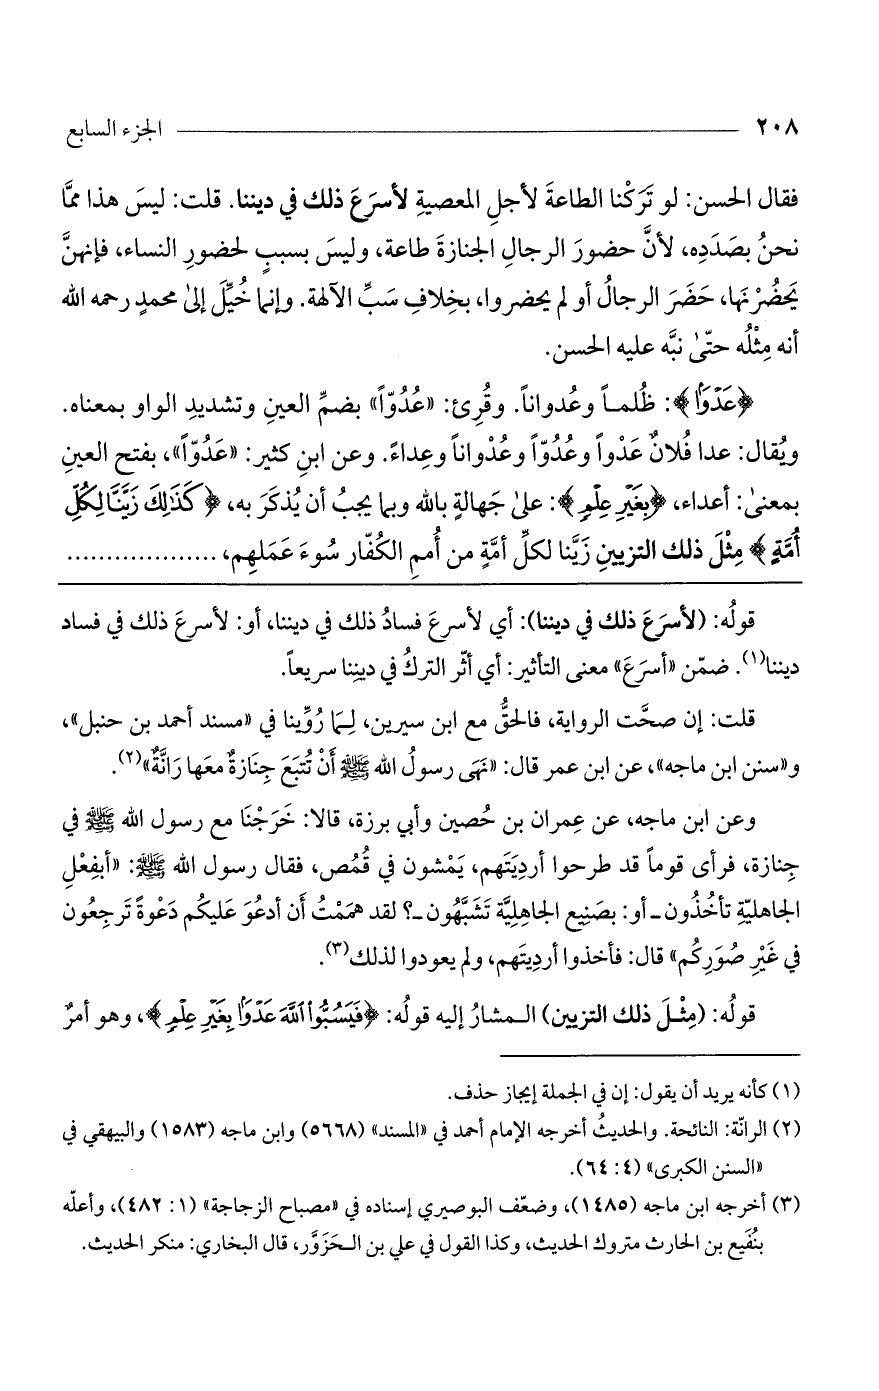 ٢٠٨ الجزء السابع
فقال الحسن: لو تَرَكْنا الطاعةَ لأجلِ المعصيةِ لأسرَعَ ذلك في ديننا. قلت: ليسَ هذا ممَّا
نحنُ بصَدَدِه، لأنَّ حضورَ الرجالِ الجنازةَ طاعة، وليسَ بسببٍ لحضورِ النساء، فإنهنَّ
يَحضُرْنَها، حَضَرَ الرجالُ أو لم يحضروا، بخِلافِ سَبِّ الآلهة. وإنما خُيِّلَ إلىٰ محمدٍ رحمه الله
أنه مِثْلُه حتّىٰ نبَّه عليه الحسن.
﴿عَدْوًۢا﴾: ظُلمـاً وعُدواناً. وقُرِئ: «عُدُوّاً» بضمِّ العينِ وتشديدِ الواو بمعناه.
ويُقال: عدا فُلانٌ عَدْواً وعُدُوّاً وعُدْواناً وعِداءً. وعن ابنِ كثير: «عَدُوّاً»، بفتح العينِ
بمعنىٰ: أعداء، ﴿بِغَيْرِ عِلْمٍ﴾: علىٰ جَهالةٍ بالله وبما يجبُ أن يُذكَرَ به، ﴿كَذَٰلِكَ زَيَّنَّا لِكُلِّ
أُمَّةٍ﴾ مِثْلَ ذلك التزيينِ زَيَّنا لكلِّ أمَّةٍ من أُممِ الكُفّار سُوءَ عَمَلهِم، ...................
قولُه: (لأسرَعَ ذلك في ديننا): أي لأسرعَ فسادُ ذلك في ديننا، أو: لأسرعَ ذلك في فساد
ديننا(١). ضمّن «أسرَعَ» معنى التأثير: أي أثّر التركُ في ديننِا سريعاً.
قلت: إن صحَّت الرواية، فالحقُّ مع ابن سيرين، لِـمَا رُوِّينا في «مسند أحمد بن حنبل»،
و«سنن ابن ماجه»، عن ابن عمر قال: «نَهَى رسولُ الله ﷺ أَنْ تُتبَعَ جِنَازةٌ معَها رَانَّةٌ»(٢).
وعن ابن ماجه، عن عِمران بن حُصين وأبي برزة، قالا: خَرَجْنَا مع رسول الله ﷺ في
جِنازة، فرأى قوماً قد طرحوا أرديَتَهم، يَمْشون في قُمُص، فقال رسول الله ﷺ: «أبفِعْلِ
الجاهليّةِ تأخُذُون ـ أو: بصَنِيع الجاهِلِيَّة تَشَبَّهُون ـ؟ لقد هممْتُ أن أدعُوَ عَليكُم دَعْوةً تَرجِعُون
في غَيْرِ صُوَرِكُم» قال: فأخذوا أرديتَهم، ولم يعودوا لذلك(٣).
قولُه: (مِثْـلَ ذلك التزيين) الـمشارُ إليه قولُه: ﴿فَيَسُبُّوا۟ ٱللَّهَ عَدْوًۢا بِغَيْرِ عِلْمٍ﴾، وهو أمرٌ
(١) كأنه يريد أن يقول: إن في الجملة إيجاز حذف.
(٢) الرانّة: النائحة. والحديثُ أخرجه الإمام أحمد في «المسند» (٥٦٦٨) وابن ماجه (١٥٨٣) والبيهقي في
«السنن الكبرى» (٤: ٦٤).
(٣) أخرجه ابن ماجه (١٤٨٥)، وضعّف البوصيري إسناده في «مصباح الزجاجة» (١: ٤٨٢)، وأعلّه
بنُفَيع بن الحارث متروك الحديث، وكذا القول في علي بن الـحَزَوَّر، قال البخاري: منكر الحديث.